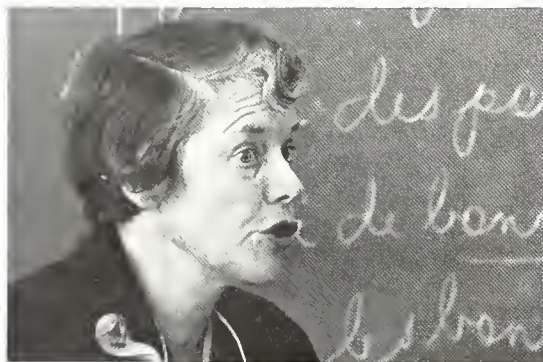 des pa
de bon
les bon